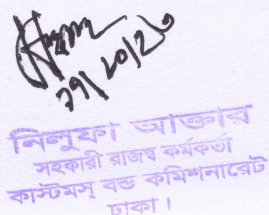 ২৭/১০/২৩
নিলুফা আক্তার
সহকারী রাজস্ব কর্মকর্তা
কাস্টমস্ বন্ড কমিশনারেট
ঢাকা।